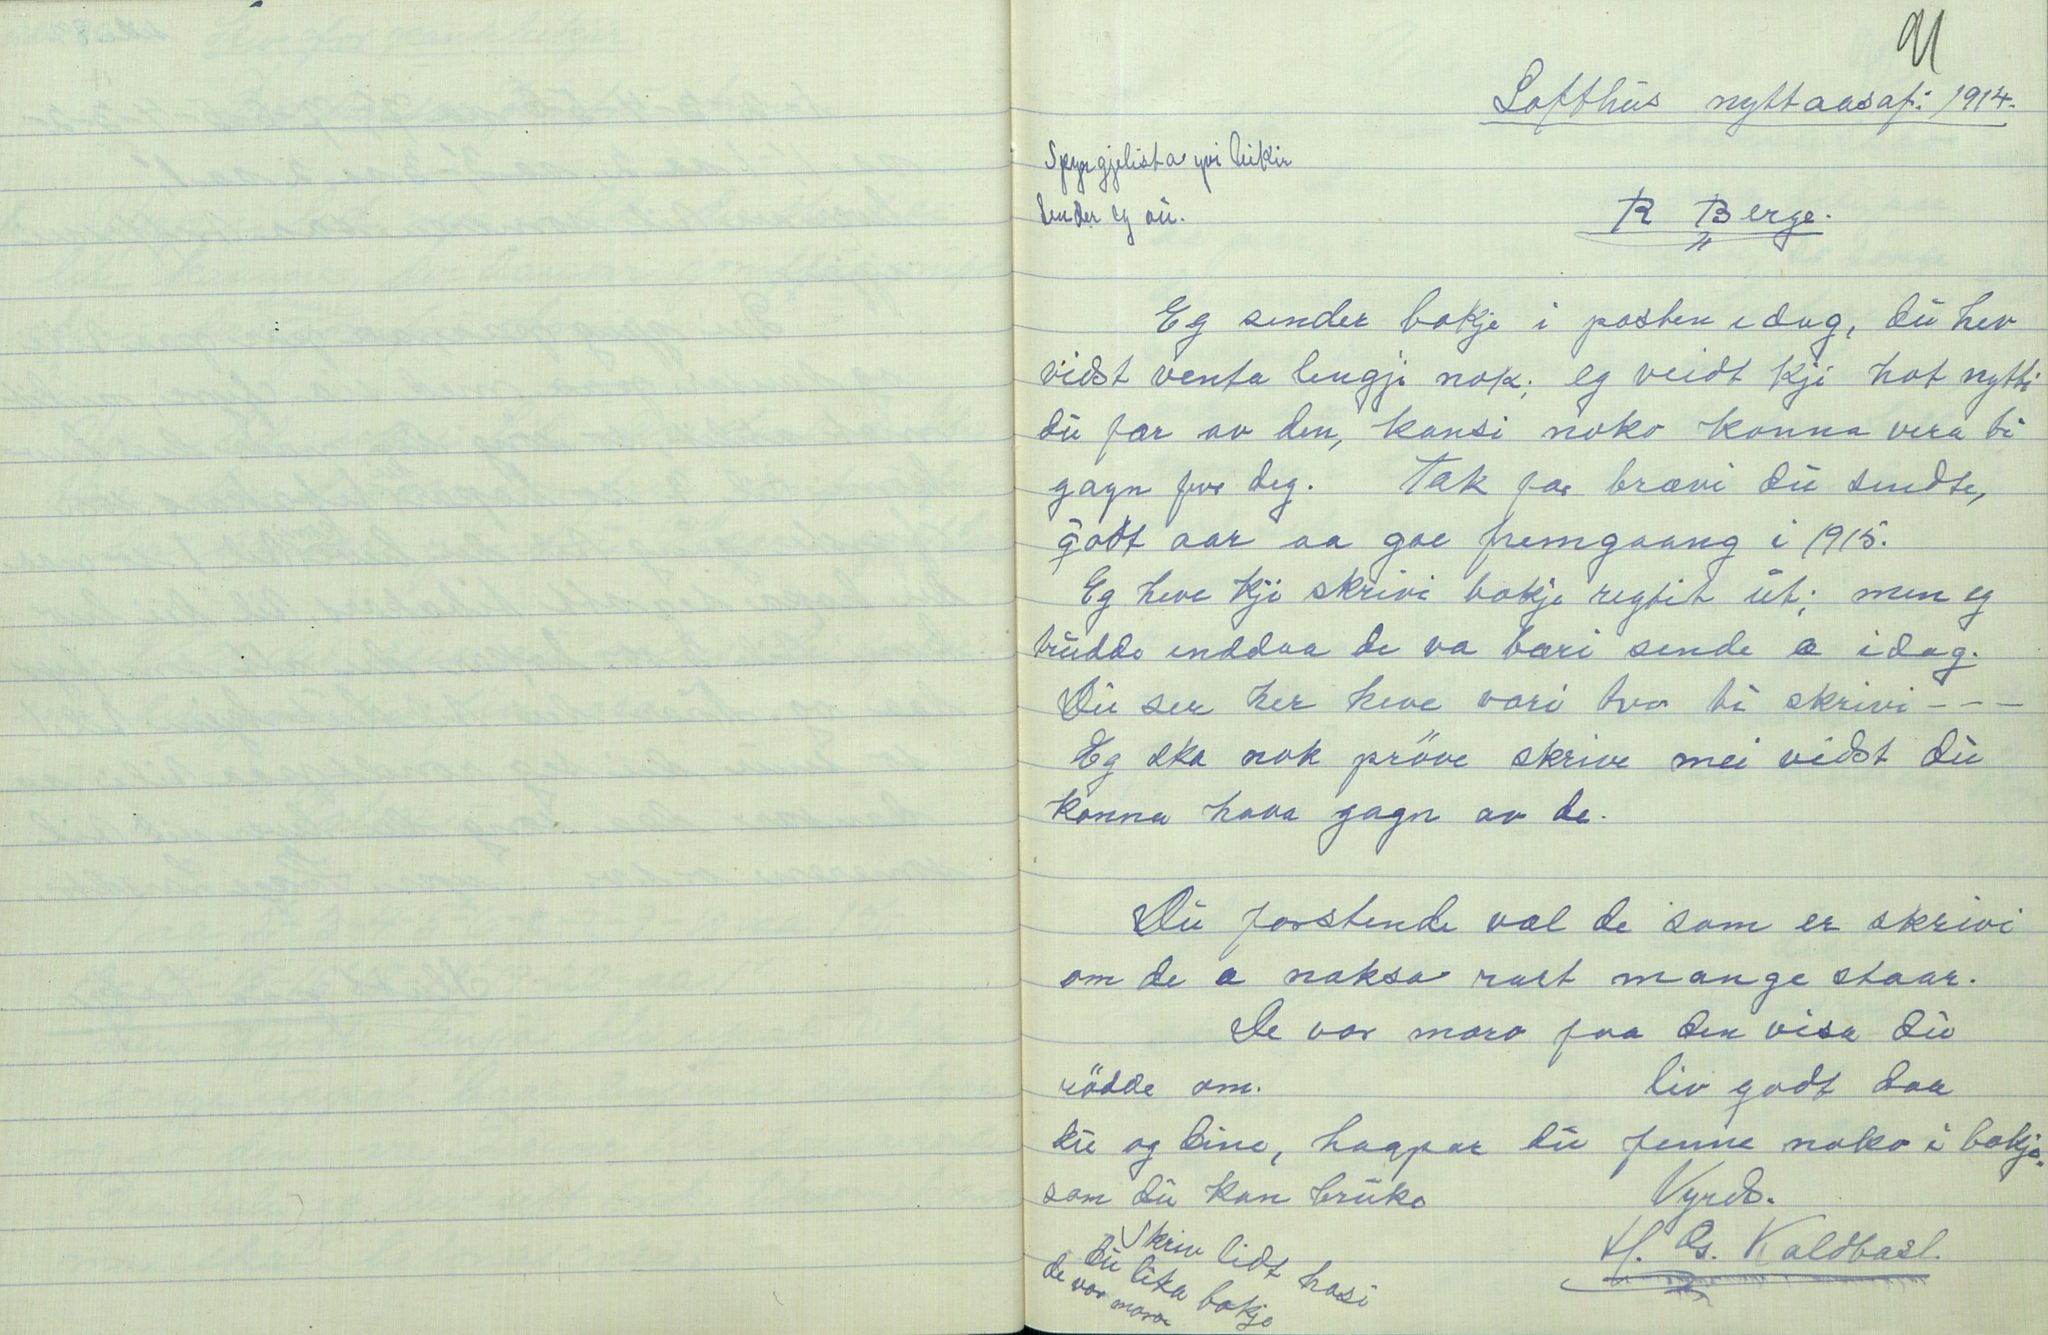 91
Lofthus nyttaasaf: 1914.
Spyrgjelista yvi leikir
sender eg au.
R Berge.
Eg sender bokje i posten idag, du hev
vidst venta lengji nok; eg veidt kji hot nytti
du fær av den, kansi noko konna vera ti
gagn for deg. Tak for brævi du sendte,
godt aar aa goe fremgaang i 1915.
Eg heve kji skrivi bokje regtit ut; men eg
trudde enddaa de va bæri sende a idag.
Du ser her heve vori tvo ti skrivi - - -
Eg ska nok pröve skrive mei vidst du
konna hava gagn av de.
Du forstende væl de som er skrivi
om de a nokso rart mange staar.
De var moro faa den visa du
rödde om. Liv godt daa
du og dine, haapar du fenne noko i bokje.
som du kan bruka Vyrds.
H. Os. Kaldbasl.
Skriv lidt hosi
du lika bokje
de var moro